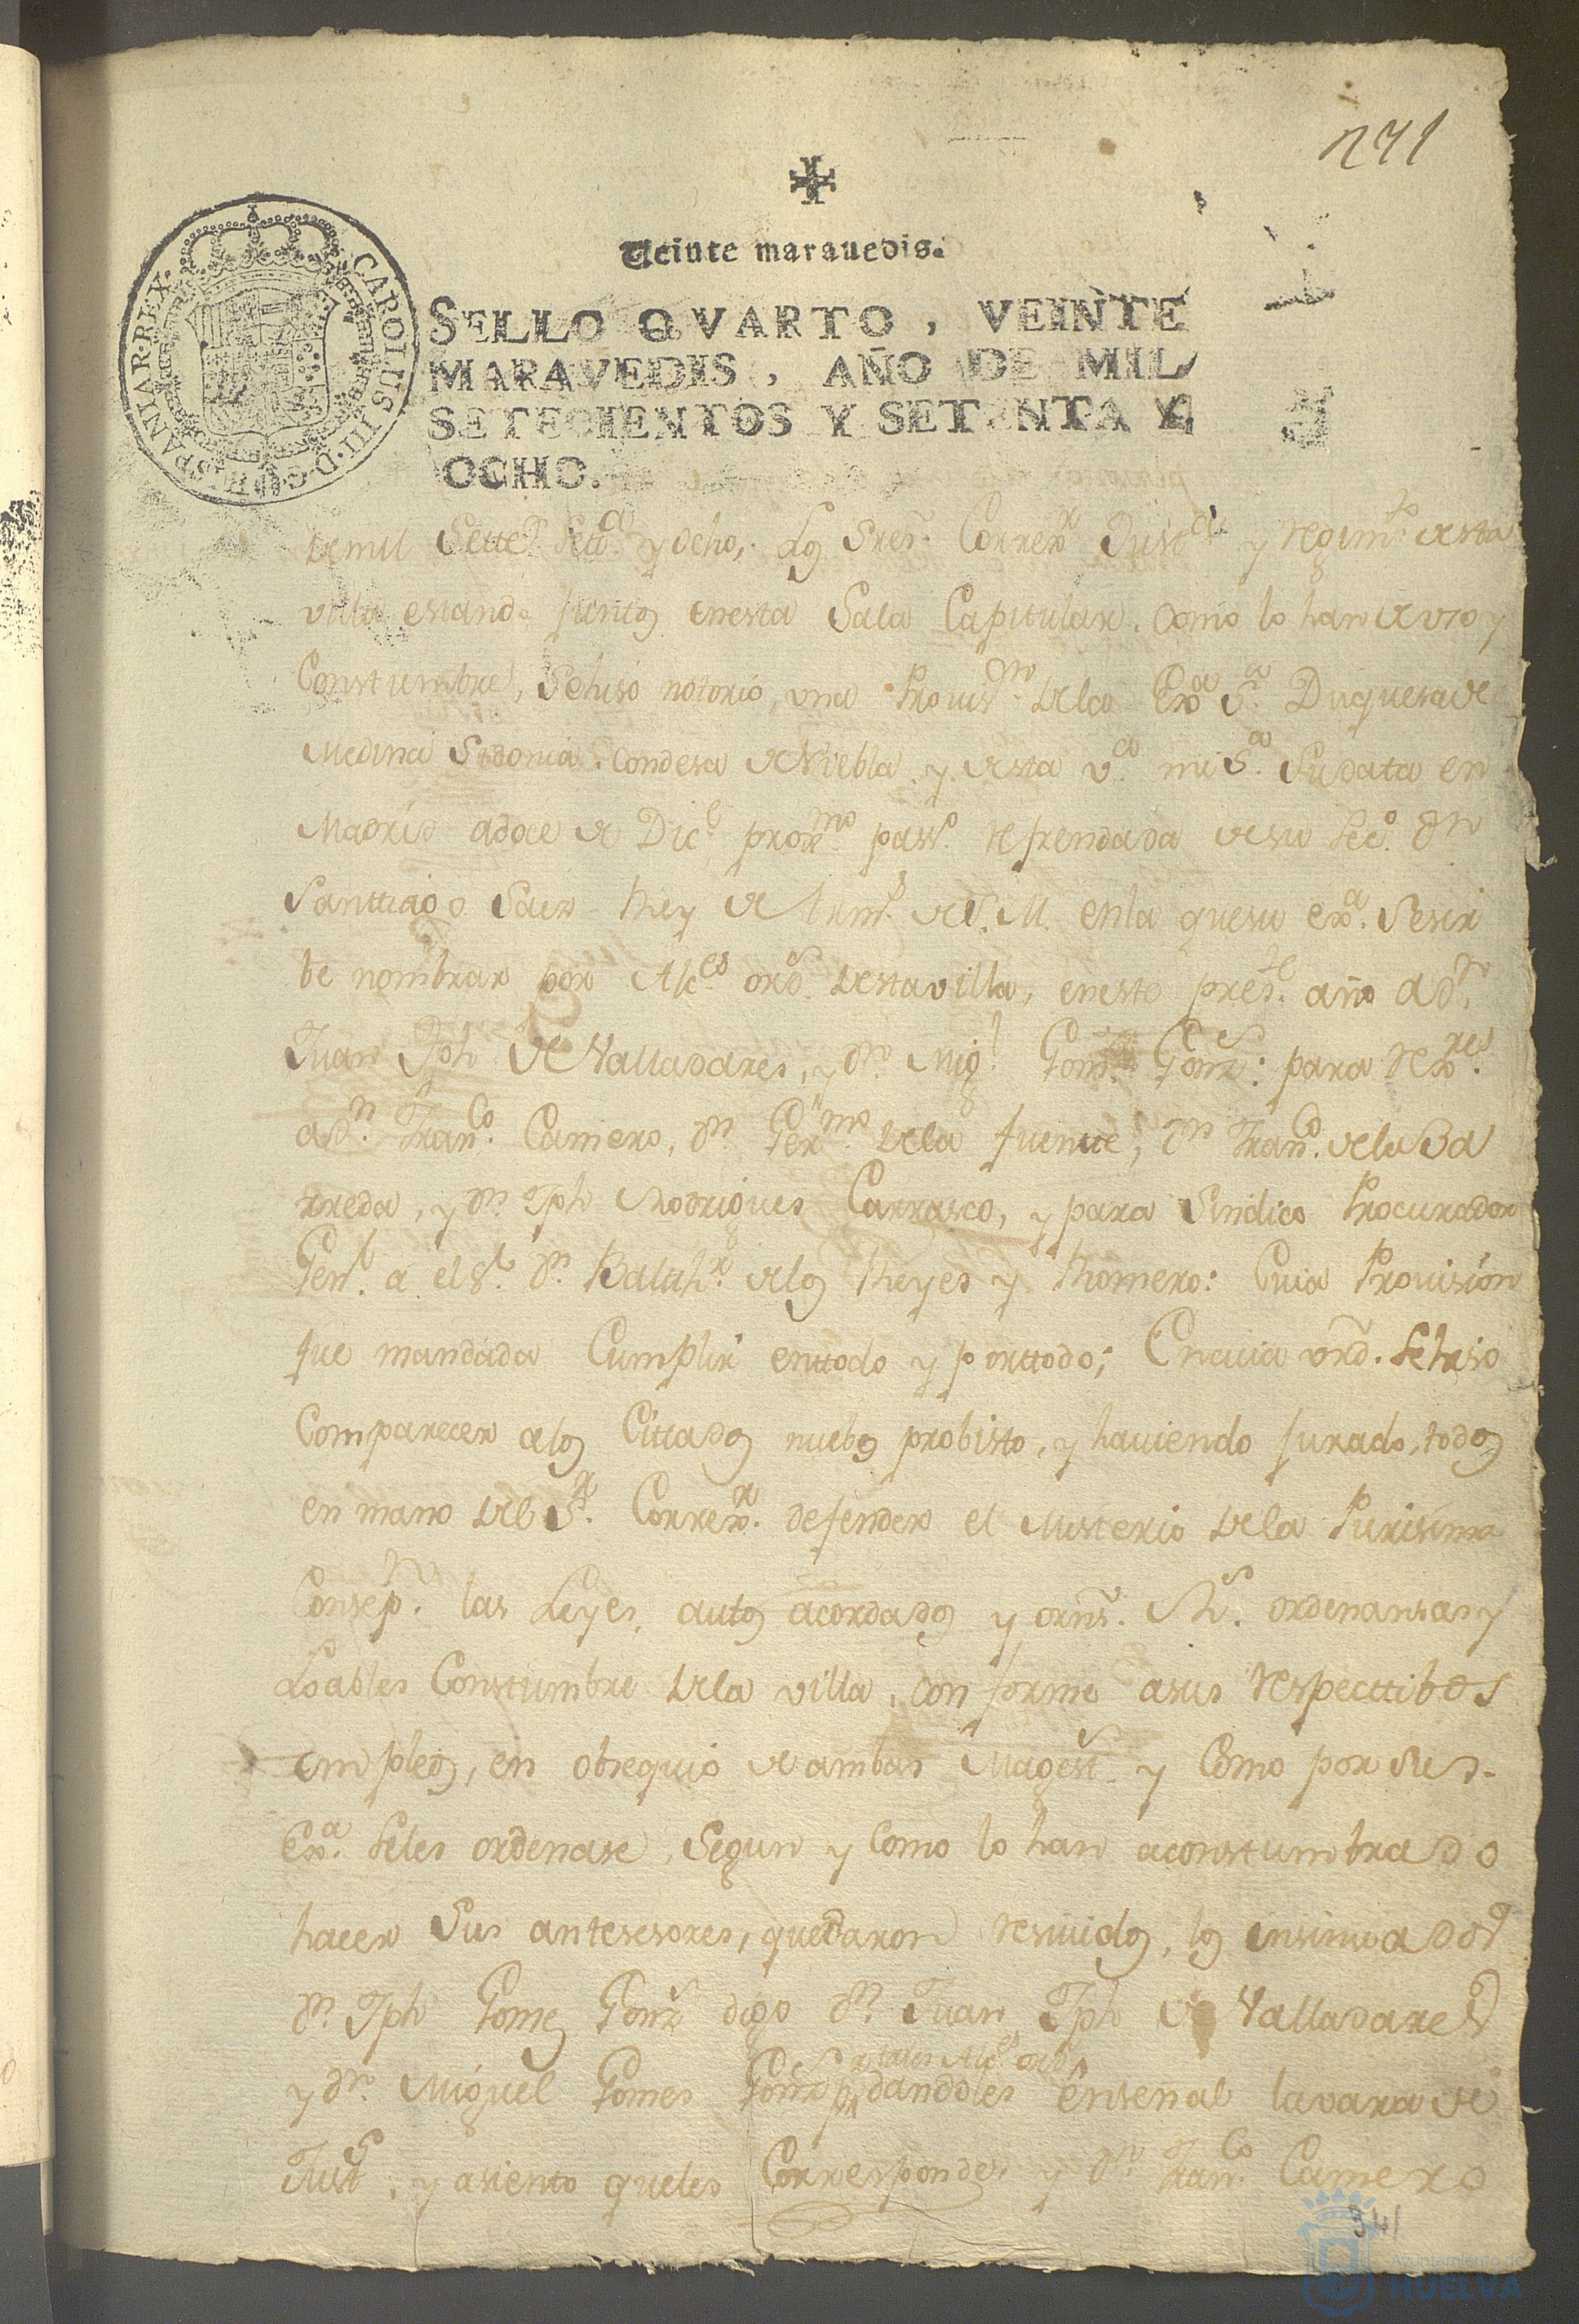 271
Veinte maravedis.
SELLO QVARTO, VEINTE
MARAVEDIS, AÑO DE MIL
SETECIENTOS Y SETENTA Y
OCHO.
CAROLUS III D G HISPANIAR REX
de mil Settes. Settª. y ocho, los Sres. Correxr. Justª. y regimto. de esta
villa estando juntos en esta Sala Capitular, como lo han de uso y
Constumbre, Se hiso notorio, una Provisn. de la Exmª Sª. Duquesa de
Medina Sidonia, Condesa de Niebla y de esta vª. mi Sª. Su data en
Madrid a doce de Dice. proxmo. pasdo. refrendada de su Seco. Dn
Santtiago Saiz Rey de Arms. de S. M. en la que su exª. Se sir
be nombrar por Alces. ords. de esta villa, en este prest. año a Dn.
Juan Jph de Valladares, y Dn. Migl. Goms. Gonz: para rexres.
a Dn. Franco. Camero, Dn Germo. de la fuente, Dn Franco. de la Ba
rreda, y Dn. Jph Rodrigues Carrasco, y para Sindico Procurador
Genl. a el Sr. Dn. Balthr. de los Reyes y Romero: Cuia Provision
fue mandada Cumplir enttodo y porttodo; En cuia ord. se hiso
Comparecer a los Cittados nuebos probisto, y haviendo jurado, todos
en mano del Sr. Correxr. defender el Misterio de la Purisima
Consepn. las Leyes, autos acordados y orns. Rs. ordenansas y
Loables Constumbre de la villa, conforme a sus respecttibos
empleos, en obsequio de ambas Magests. y Como por Su
Exª. se les ordenase, Segun y como lo han aconstumbrado
hacer Sus antesesores, quedaron resuidos, los insinuados
Dn. Jph Gomes Gonz digo Dn. Juan Jph de Valladares
por tales Alces ords
y Dn. Miguel Gomes Gonz dandoles en señal la vara de
Justª. y asiento que les Corresponde, y Dn. Franco. Camero
341
Ayuntamiento de
HUELVA